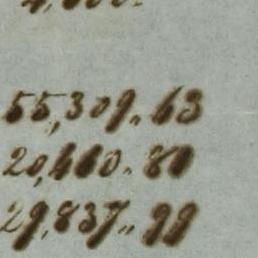 55,309,, 63
20,460,, 80
29,837,, 99